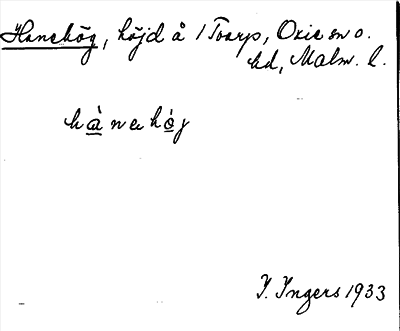 Hanehög, höjd å 1 Toarp, Oxie sn o.
hd, Malm. l.
hànehój
I. Ingers 1933